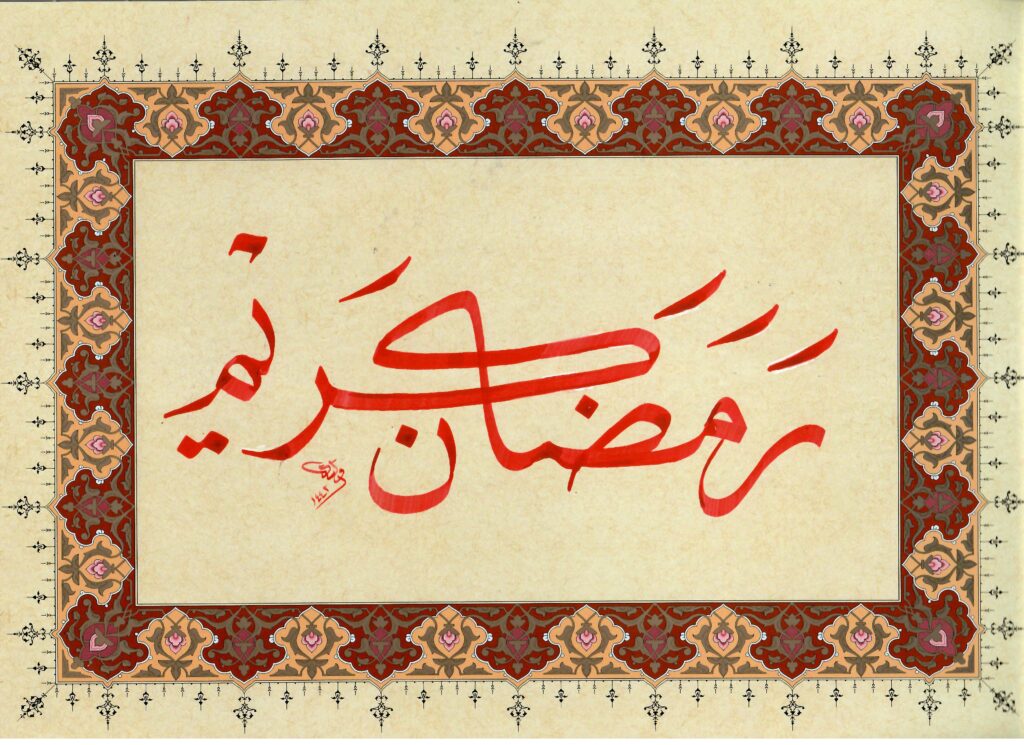 رمضان كريم
١٤٤٢